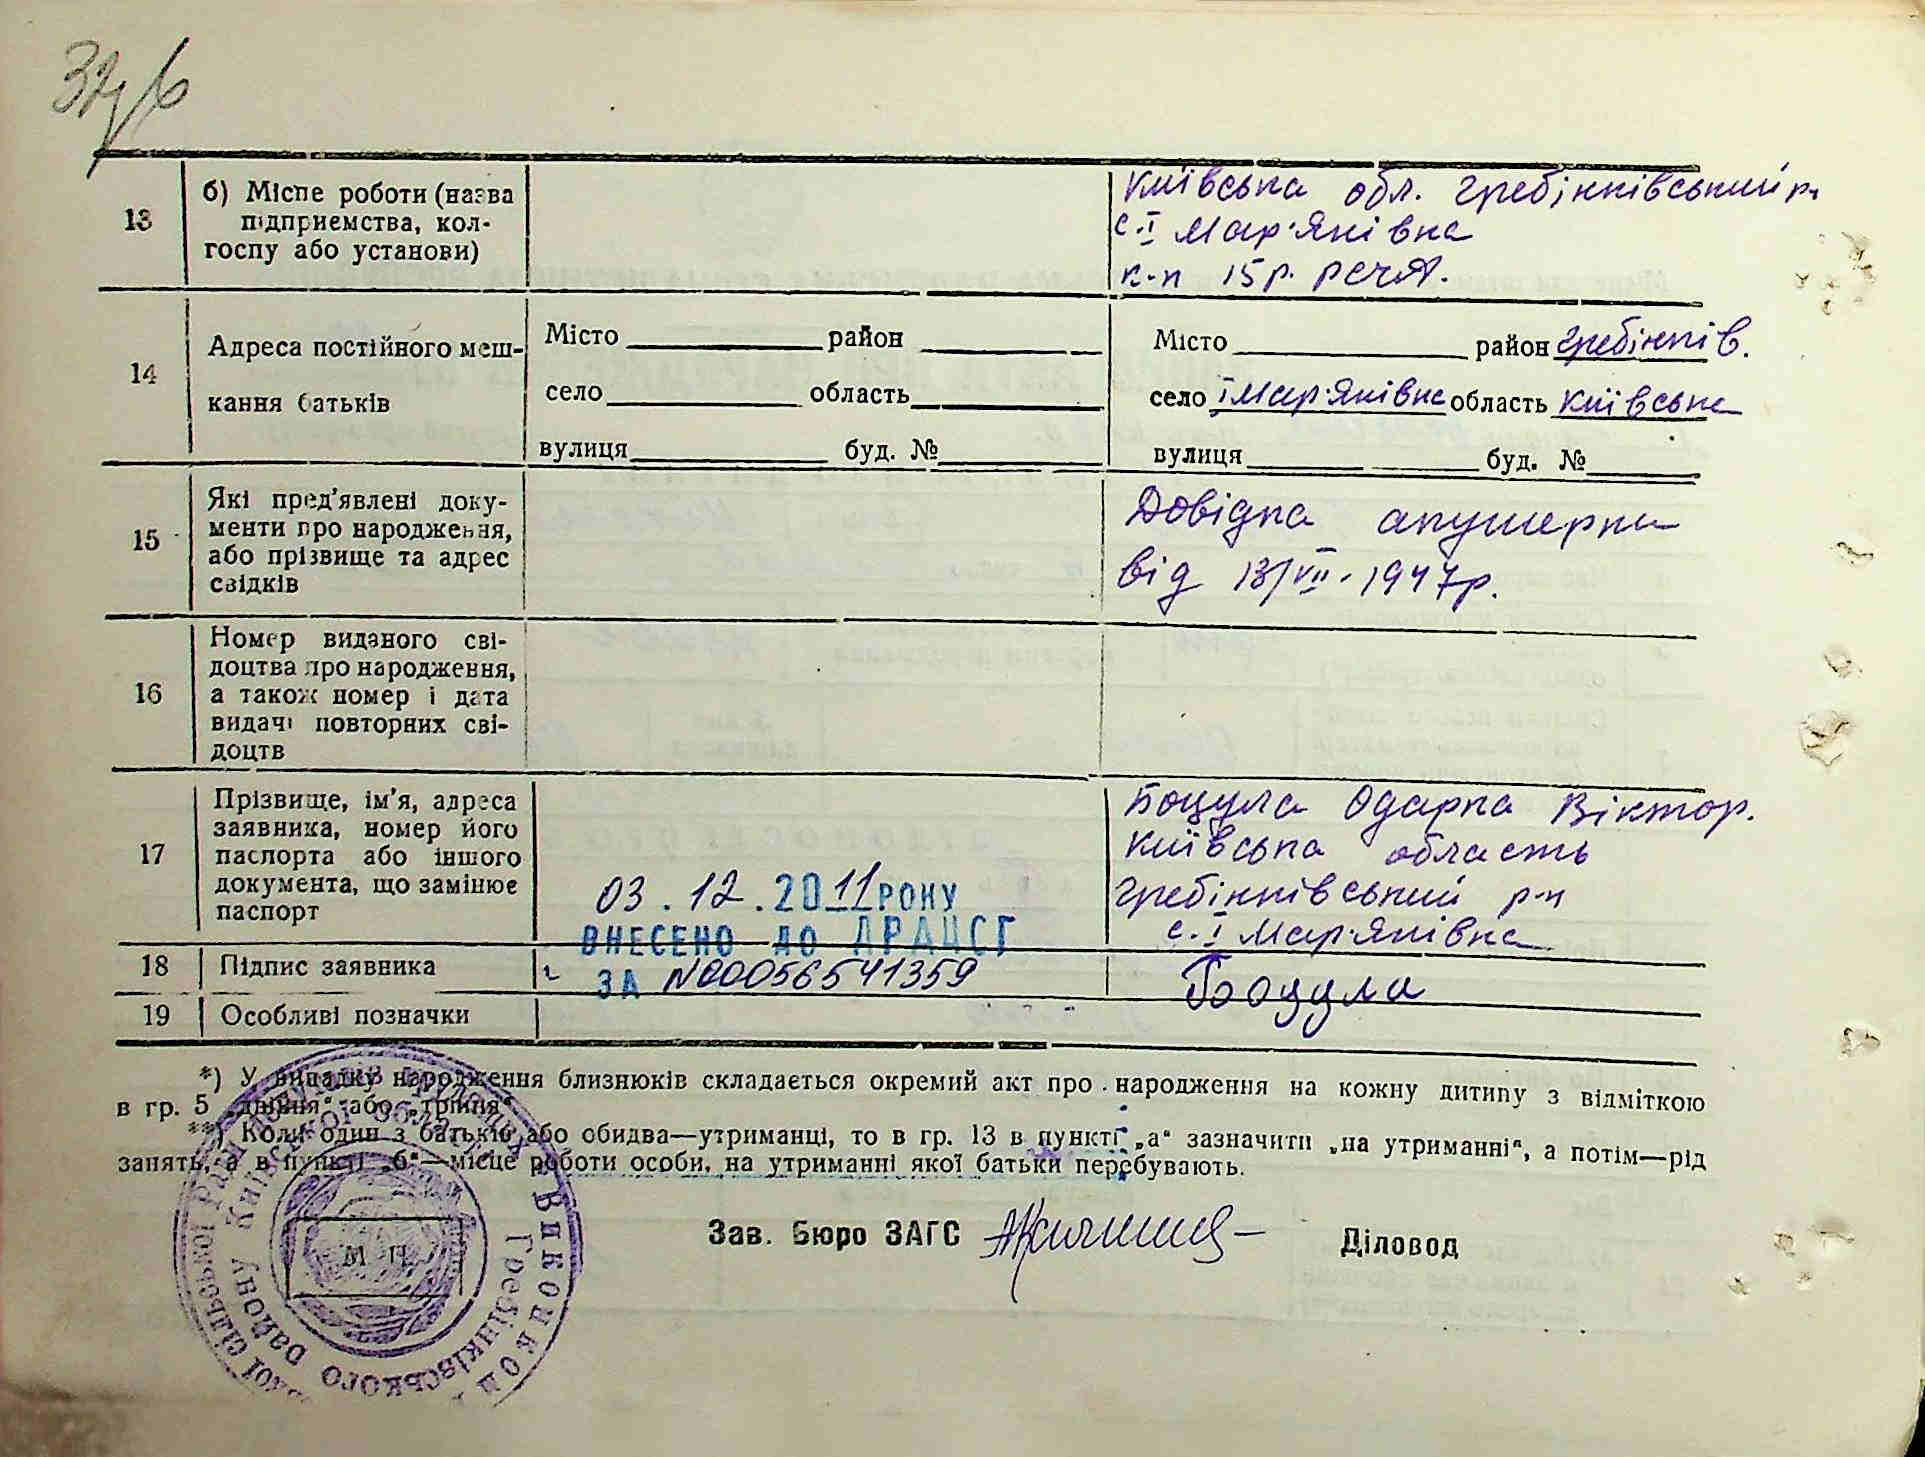 13
б) Місце роботи (назва
підприємства, кол-
госпу або установи)
Київська обл. Гребінківський р.
с. І Мар'янівка
к-п 15 р. РСЧА.
14
Адреса постійного меш-
кання батьків
Місто район
село область
вулиця буд. №
Місто район Гребінків.
село І Мар'янівка область Київська
вулиця буд. №
15
Які пред'явлені доку-
менти про народження,
або прізвище та адрес
свідків
Довідка акушерки
від 13/VII. 1947р.
16
Номер виданого сві-
доцтва про народження,
а також номер і дата
видачі повторних сві-
доцтв
17
Прізвище, ім'я, адреса
заявника, номер його
паспорта або іншого
документа, що замінює
паспорт
03.12.2011 РОКУ
ВНЕСЕНО ДО ДРАЦСГ
ЗА №00056541359
Боцула Одарка Віктор.
Київська область
Гребінківський р-н
с. І Мар'янівка
18
Підпис заявника
Боцула
19
Особливі позначки
*) У випадку народження близнюків складається окремий акт про народження на кожну дитину з відміткою
в гр. 5 „двійня“ або „трійня“.
**) Коли один з батьків або обидва—утриманці, то в гр. 13 в пункті „а“ зазначити „на утриманні“, а потім—рід
занять, а в пункті „б“—місце роботи особи, на утриманні якої батьки перебувають.
Зав. Бюро ЗАГС
Діловод
М П
Виконком
Гребінківського району Київської області